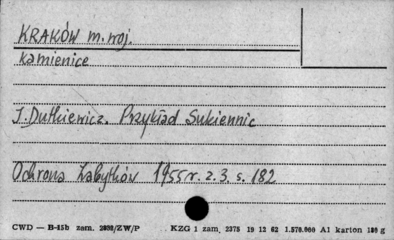 KRAKÓW m. woj.
kamienice
J. Dutkiewicz. Przykład Sukiennic
Ochrona Zabytków 1955 r. z. 3. s. 182
CWD — B-15b zam. 2936/ZW/P KZG 1 zam. 2375 19 12 62 1.570.000 A1 karton 180 g